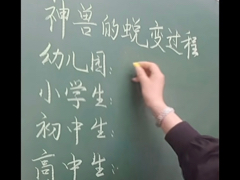 神兽的蜕变过程
幼儿园：
小学生：
初中生：
高中生：